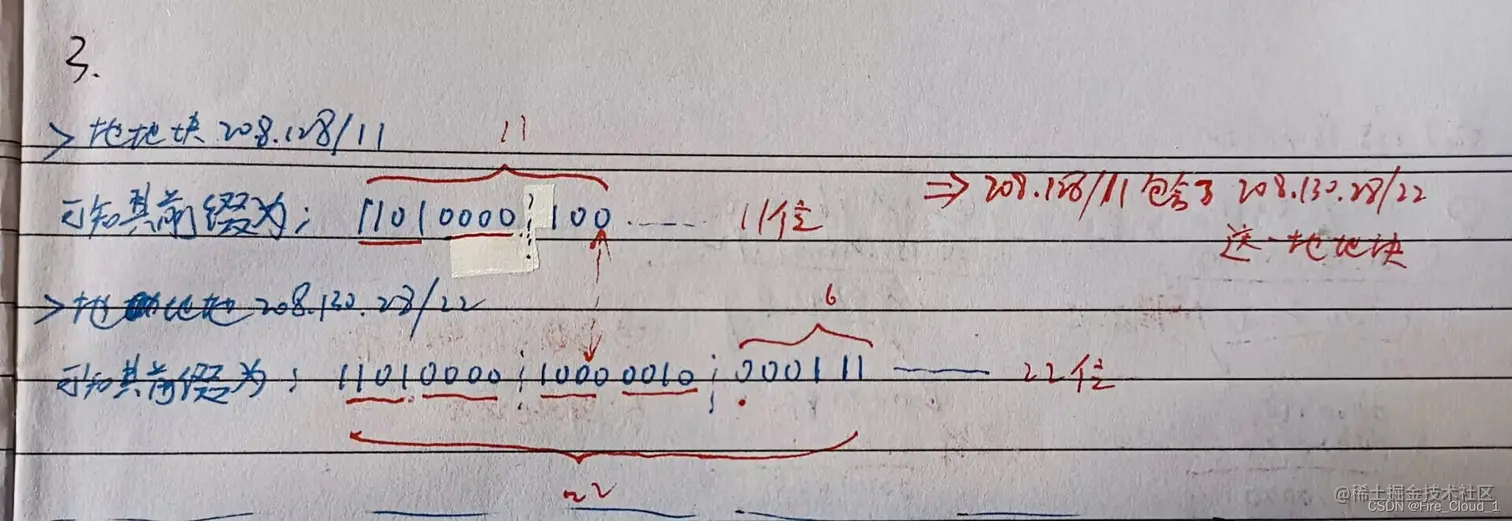 3.
>地地块 208.128/11
11
可知其前缀为: 11010000 100 ...... 11位
⇒ 208.128/11 包含了 208.130.28/22
这一地地块
>地 地地 208.130.28/22
6
可知其前缀为: 11010000 10000010 000111 —— 22位
22
@稀土掘金技术社区
CSDN @Fire_Cloud_1